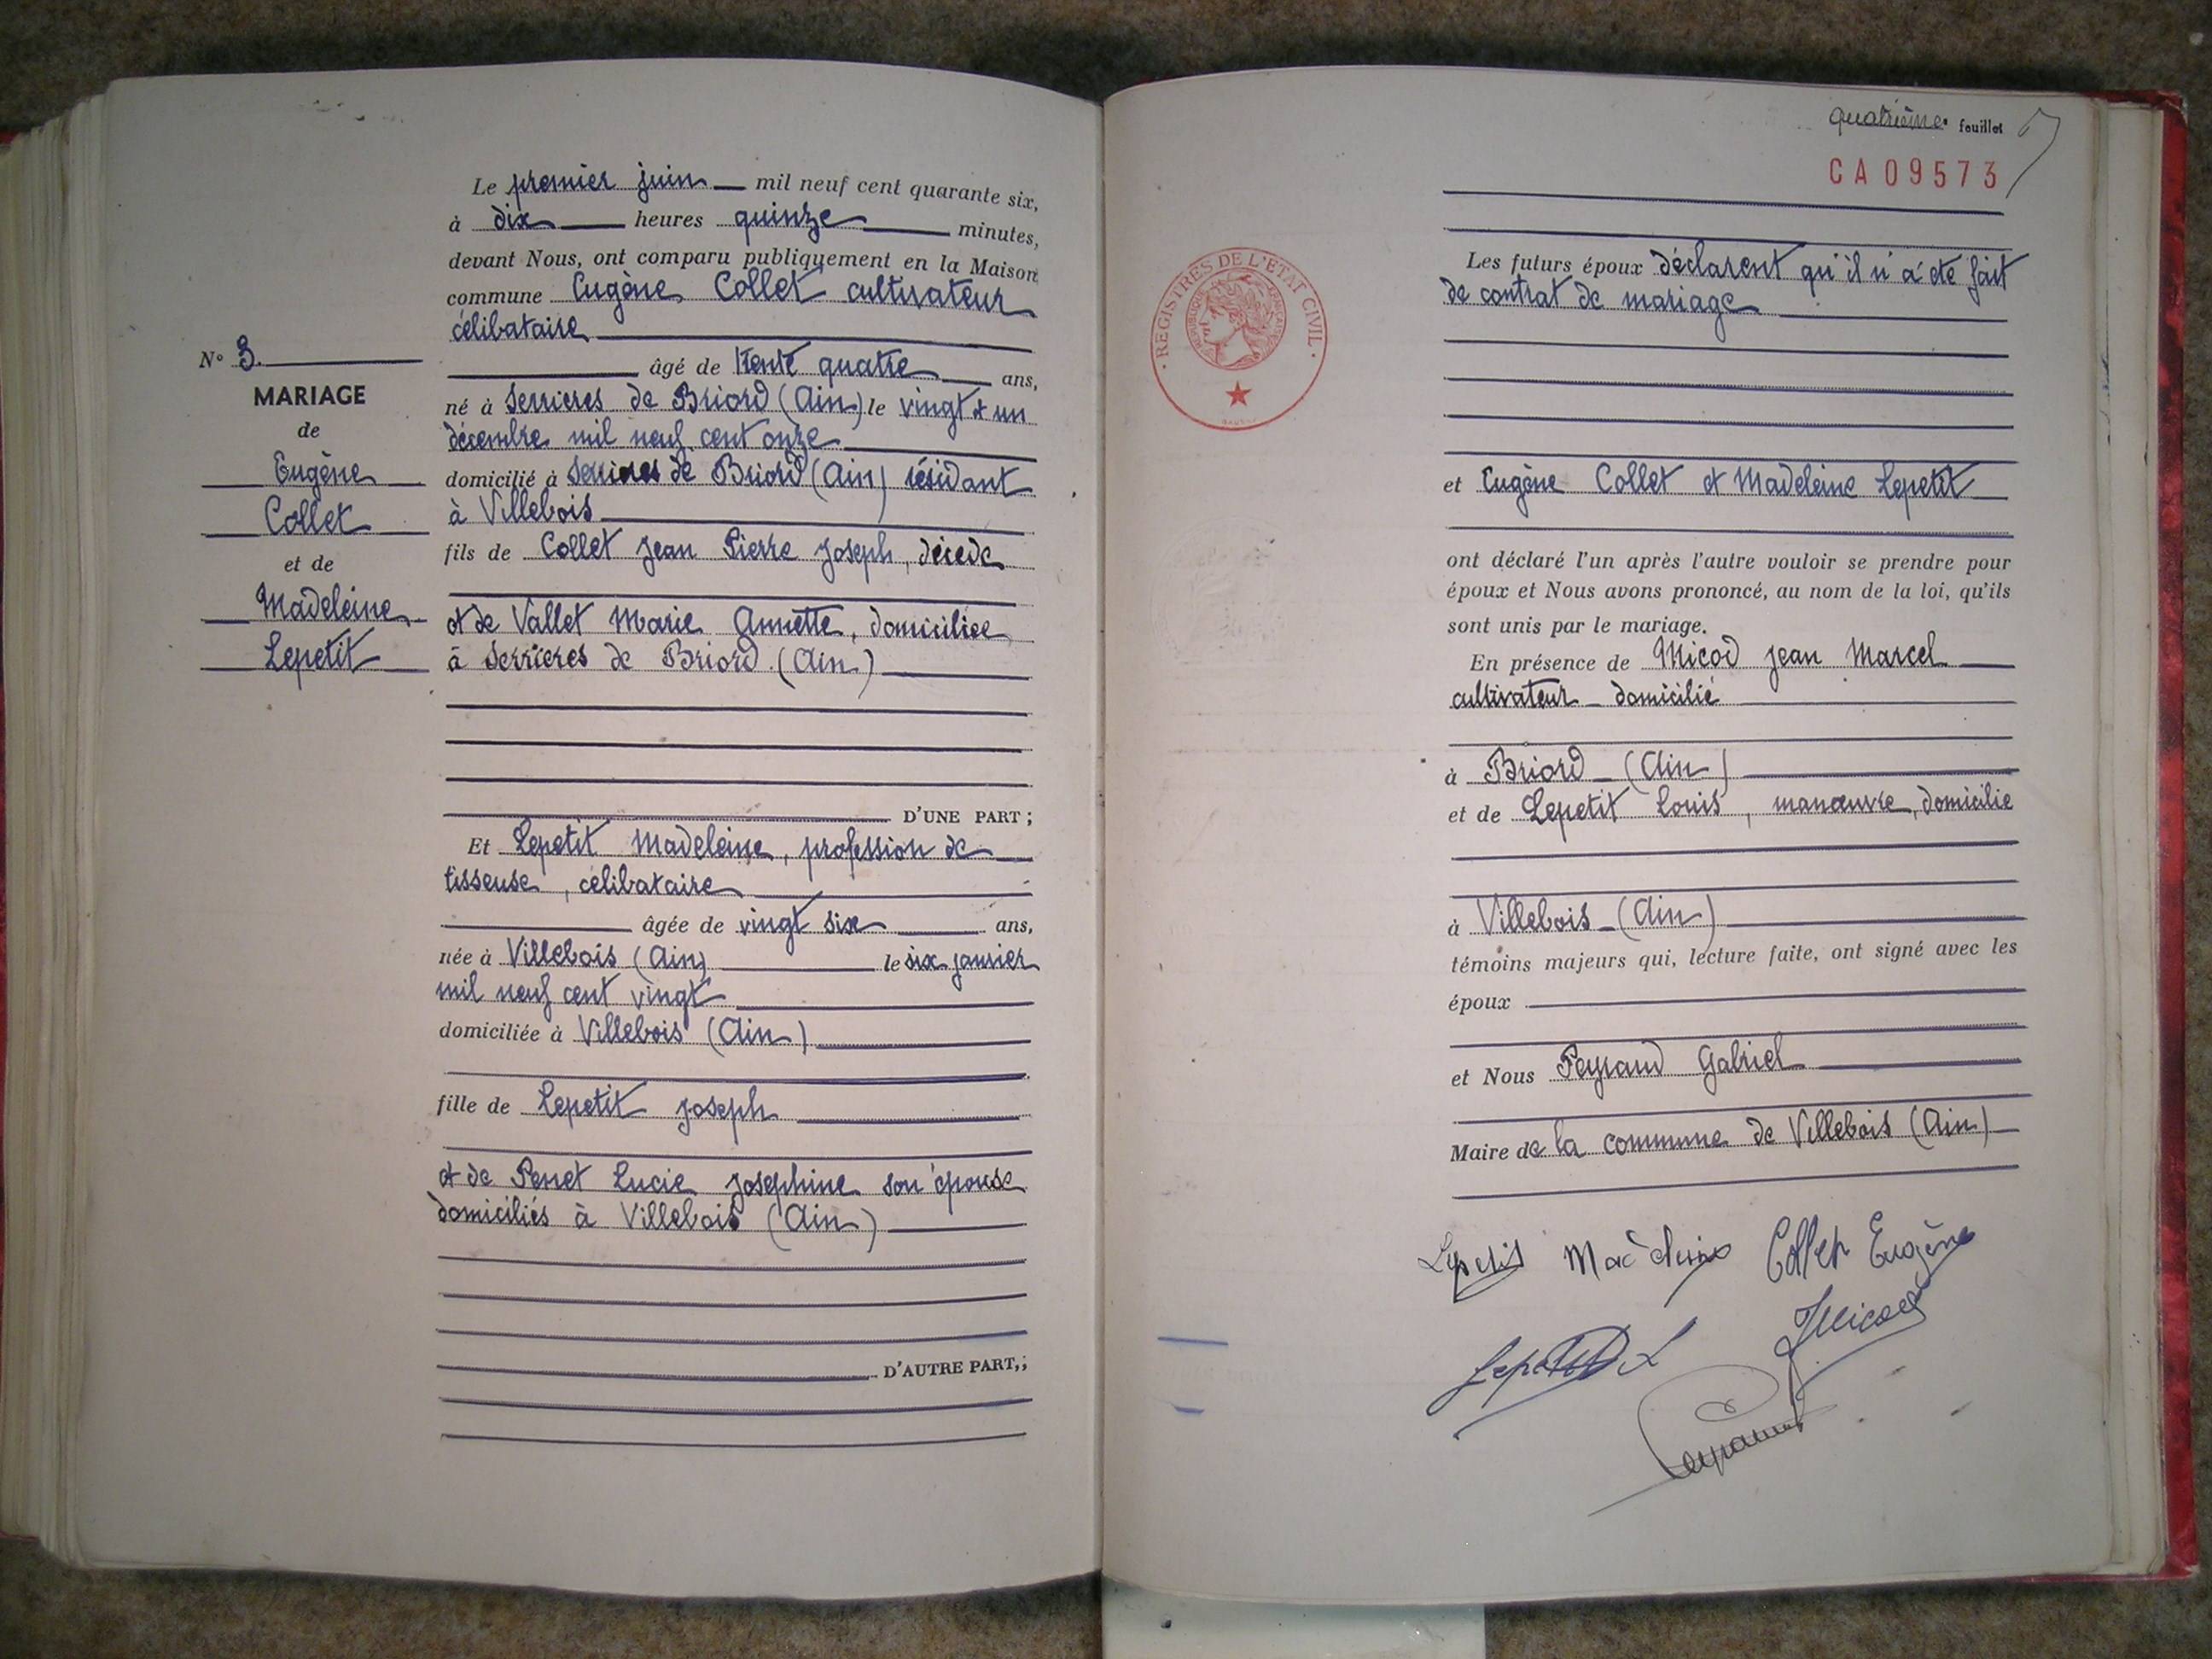 Le premier juin mil neuf cent quarante six,
à dix heures quinze minutes,
devant Nous, ont comparu publiquement en la Maison
commune Eugène Collet cultivateur
célibataire
âgé de trente quatre ans,
né à Serrières de Briord (Ain) le vingt et un
décembre mil neuf cent onze
domicilié à Serrières de Briord (Ain) résidant
à Villebois
fils de Collet Jean Pierre Joseph, décédé
et de Vallet Marie Annette, domiciliée
à Serrières de Briord (Ain)
D'UNE PART ;
Et Lepetit Madeleine, profession de
tisseuse, célibataire
âgée de vingt six ans,
née à Villebois (Ain) le six janvier
mil neuf cent vingt
domiciliée à Villebois (Ain)
fille de Lepetit Joseph
et de Perret Lucie Josephine son épouse
domiciliés à Villebois (Ain)
D'AUTRE PART,;
N° 3.
MARIAGE
de
Eugène
Collet
et de
Madeleine
Lepetit
quatrième feuillet
CA 09573
REGISTRES DE L'ETAT CIVIL
Les futurs époux déclarent qu'il n'a été fait
de contrat de mariage
et Eugène Collet et Madeleine Lepetit
ont déclaré l'un après l'autre vouloir se prendre pour
époux et Nous avons prononcé, au nom de la loi, qu'ils
sont unis par le mariage.
En présence de Micod Jean Marcel
cultivateur domicilié
à Briord (Ain)
et de Lepetit Louis, manœuvre, domicilié
à Villebois (Ain)
témoins majeurs qui, lecture faite, ont signé avec les
époux
et Nous Peyraud Gabriel
Maire de la commune de Villebois (Ain)
Lepetit Madeleine Collet Eugène
JMicod
Lepetit L
Peyraud